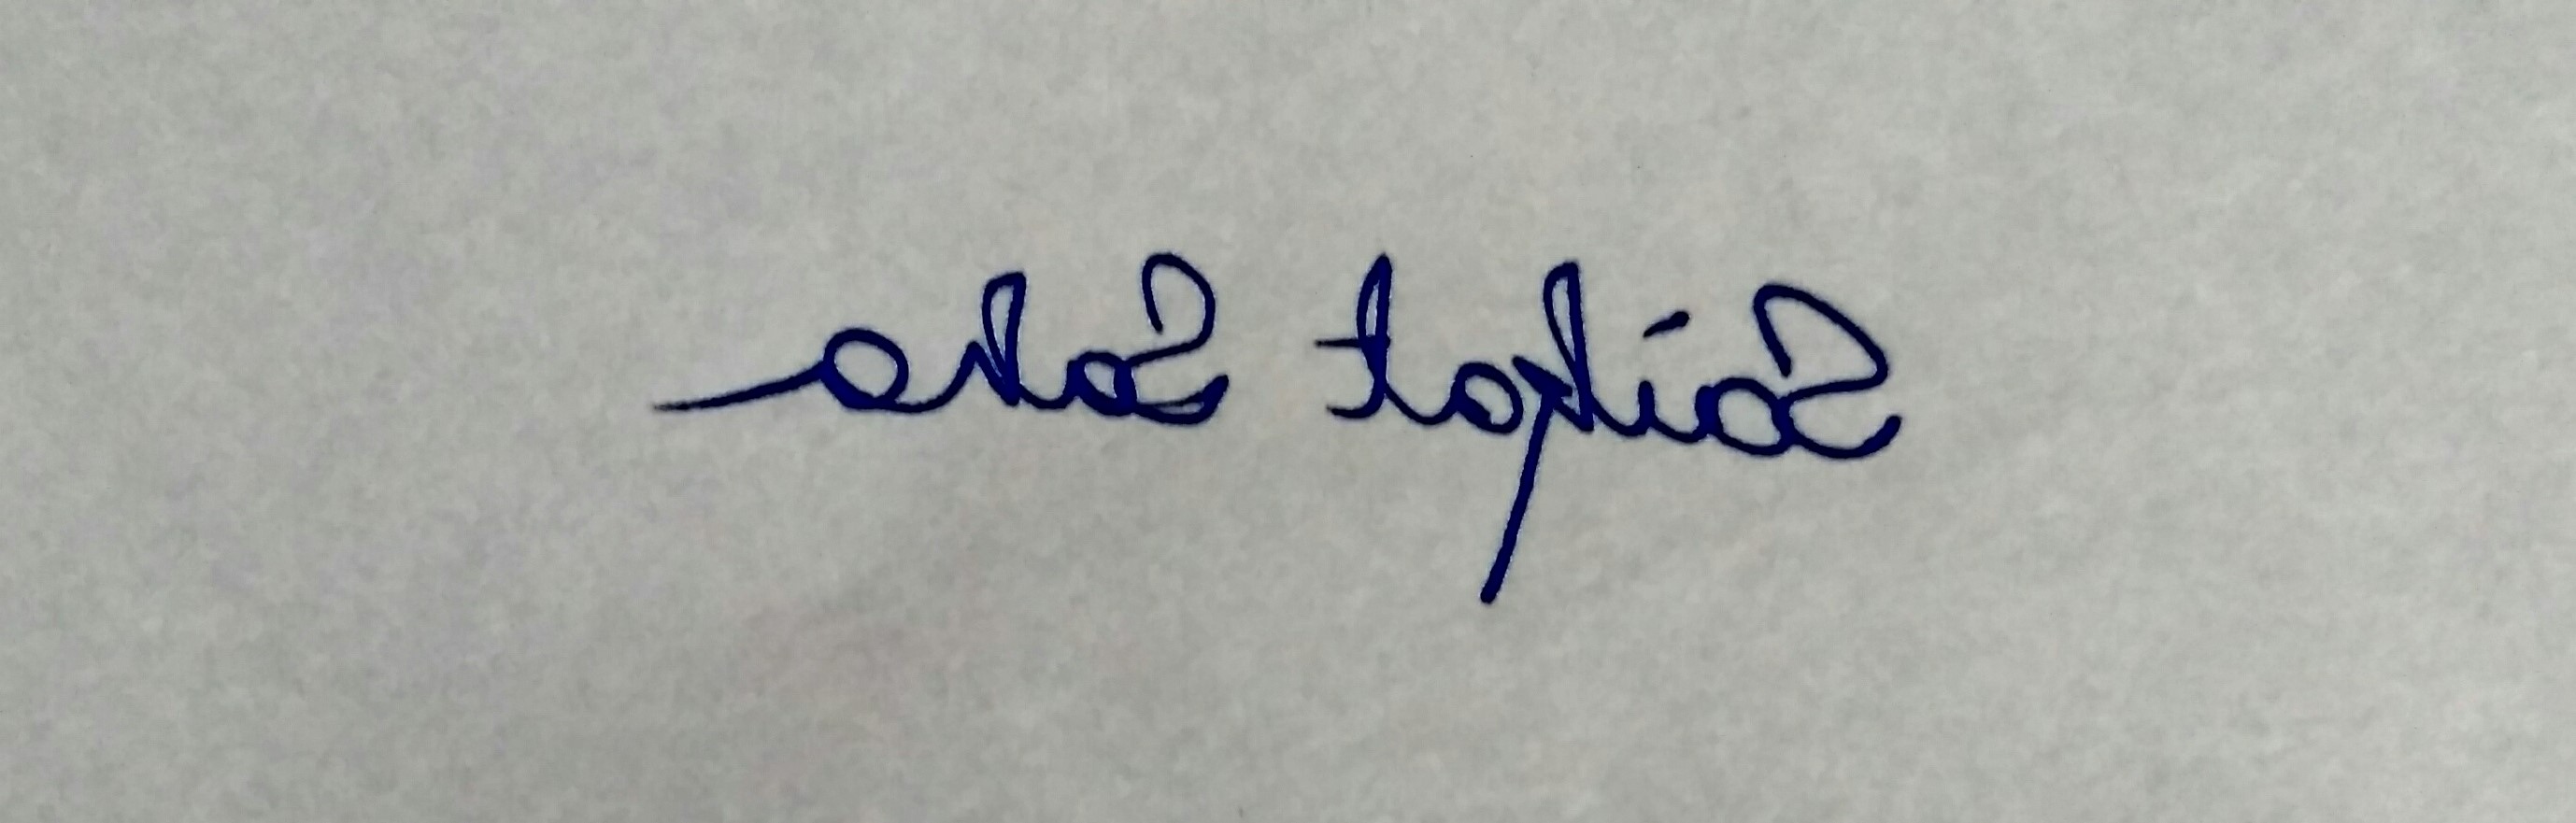 Saikat Saha